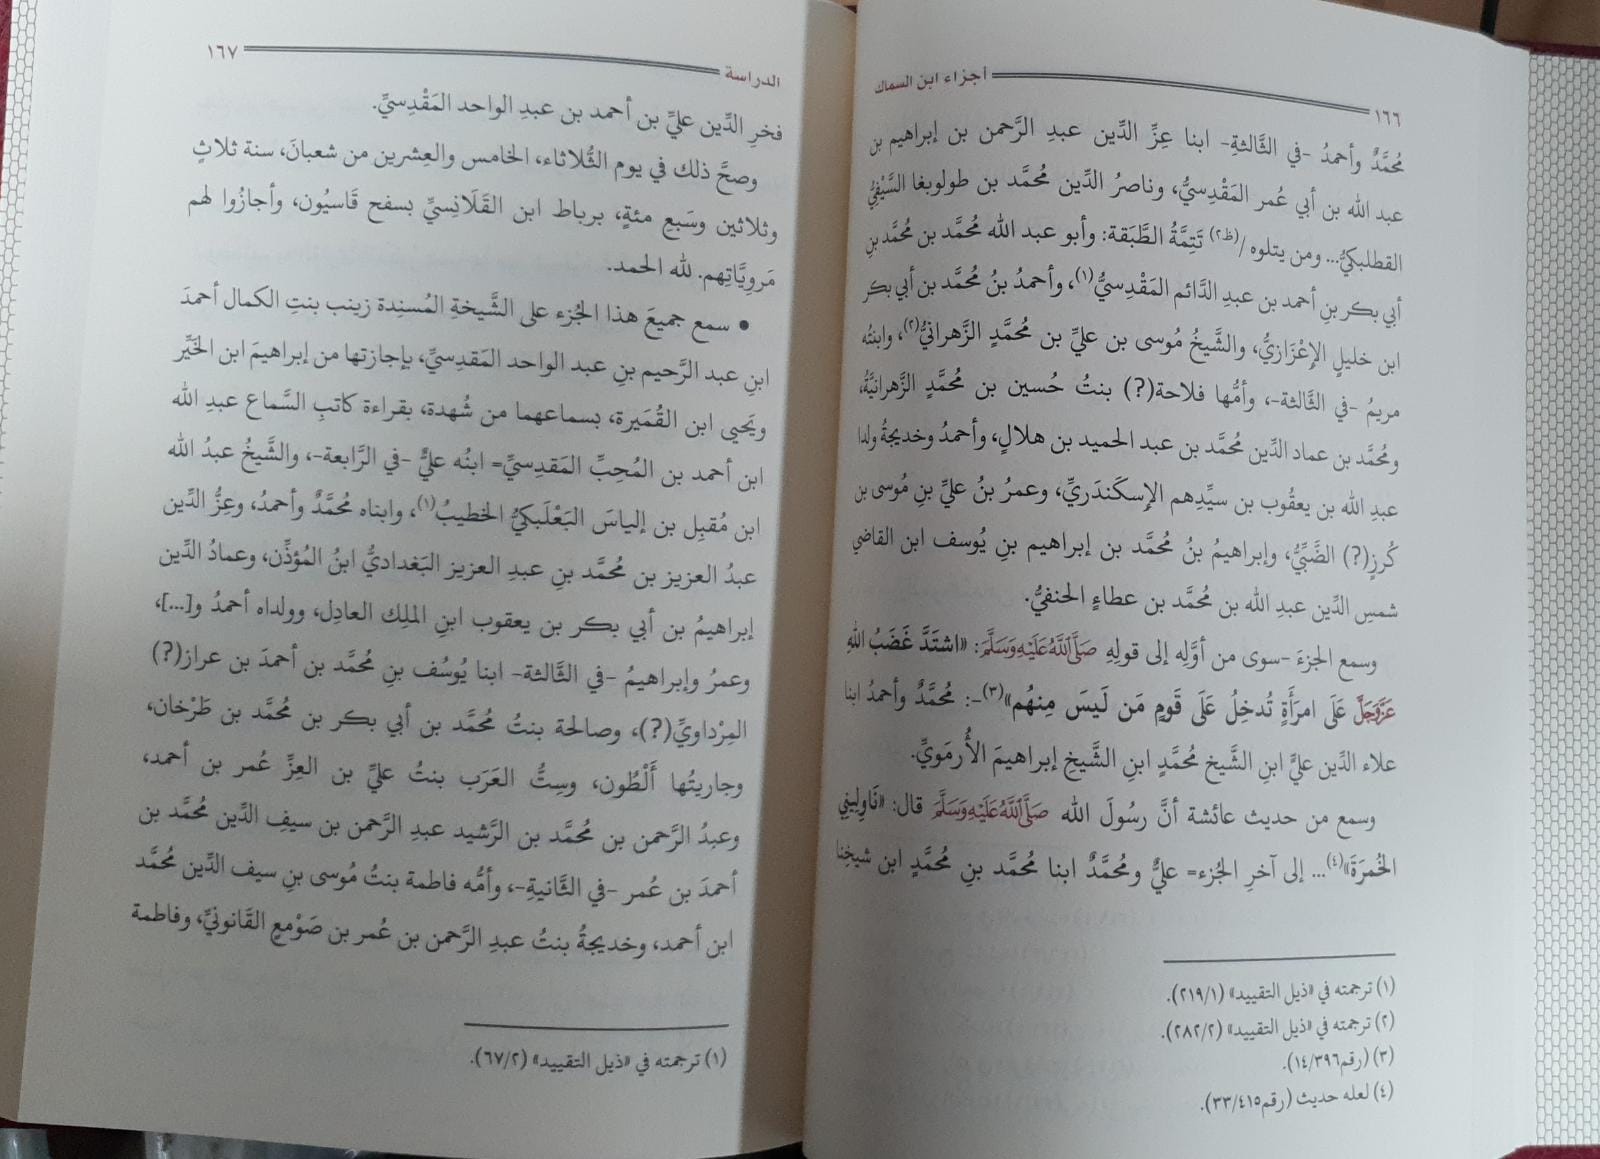 ١٦٦ أجزاء ابن السماك
مُحمَّدٌ وأحمدُ -في الثَّالثةِ- ابنا عِزِّ الدِّين عبدِ الرَّحمن بن إبراهيم بن
عبد الله بن أبي عُمر المَقْدِسيُّ، وناصرُ الدِّين مُحمَّد بن طولوبغا السَّيْفِيُّ
القطلبكيُّ... ومن يتلوه /(ظ٢) تَتِمَّةُ الطَّبَقة: وأبو عبد الله مُحمَّد بن مُحمَّدِ بنِ
أبي بكر بنِ أحمد بن عبدِ الدَّائم المَقْدِسيُّ(١)، وأحمدُ بنُ مُحمَّد بن أبي بكر
ابن خليلٍ الإعْزَازيُّ، والشَّيخُ مُوسى بن عليِّ بن مُحمَّدٍ الزَّهرانيُّ(٢)، وابنتُه
مريمُ -في الثَّالثة-، وأمُّها فلاحة(?) بنتُ حُسين بن مُحمَّدٍ الزَّهرانيَّةُ،
ومُحمَّد بن عماد الدِّين مُحمَّد بن عبد الحميد بن هلالٍ، وأحمدُ وخديجةُ ولدا
عبدِ الله بن يعقُوب بن سيِّدِهم الإسكَندَريِّ، وعمرُ بنُ عليِّ بنِ مُوسى بن
كُرزٍ(?) الضَّبِّيُّ، وإبراهيمُ بنُ مُحمَّد بن إبراهيم بنِ يُوسف ابن القاضي
شمسِ الدِّين عبدِ الله بن مُحمَّد بن عطاءٍ الحنفيُّ.
وسمع الجزءَ -سوى من أوَّلِه إلى قولِهِ صَلَّى اللَّهُ عَلَيْهِ وَسَلَّمَ: «اشتَدَّ غَضَبُ اللهِ
عَزَّ وَجَلَّ عَلَى امرَأَةٍ تُدخِلُ عَلَى قَومٍ مَن لَيسَ مِنهُم»(٣)-: مُحمَّدٌ وأحمدُ ابنا
علاء الدِّين عليٍّ ابنِ الشَّيخ مُحمَّدٍ ابنِ الشَّيخِ إبراهيمَ الأُرمَويِّ.
وسمع من حديث عائشة أنَّ رسُولَ الله صَلَّى اللَّهُ عَلَيْهِ وَسَلَّمَ قال: «نَاوِلِينِي
الخُمرَةَ»(٤)... إلى آخرِ الجُزء= عليٌّ ومُحمَّدٌ ابنا مُحمَّد بنِ مُحمَّدٍ ابن شيخِنا
(١) ترجمته في «ذيل التقييد» (٢١٩/١).
(٢) ترجمته في «ذيل التقييد» (٢٨٢/٢).
(٣) (رقم١٤/٣٩٦).
(٤) لعله حديث (رقم٣٣/٤١٥).
الدراسة ١٦٧
فخرِ الدِّين عليِّ بن أحمد بن عبدِ الواحد المَقْدِسيِّ.
وصحَّ ذلك في يوم الثُّلاثاء، الخامس والعِشرين من شعبانَ، سنة ثلاثٍ
وثلاثين وسَبعِ مئةٍ، برباط ابن القَلَانِسيِّ بسفح قَاسيُون، وأجازُوا لهم
مَرويَّاتِهم. لله الحمد.
• سمع جميعَ هذا الجُزء على الشَّيخةِ المُسنِدة زينب بنتِ الكمال أحمدَ
ابنِ عبد الرَّحيم بنِ عبد الواحد المَقدِسيِّ، بإجازتها من إبراهيمَ ابن الخَيِّر
ويَحيى ابن القُمَيرة، بسماعهما من شُهدة، بقراءة كاتبِ السَّماع عبدِ الله
ابن أحمد بن المُحِبِّ المَقدِسيِّ= ابنُه عليٌّ -في الرَّابعة-، والشَّيخُ عبدُ الله
ابن مُقبِل بن إلياسَ البَعْلَبكيُّ الخطيبُ(١)، وابناه مُحمَّدٌ وأحمدُ، وعِزُّ الدِّين
عبدُ العزيز بن مُحمَّد بنِ عبدِ العزيز البَغداديُّ ابنُ المُؤذِّن، وعمادُ الدِّين
إبراهيمُ بن أبي بكر بن يعقوب ابنِ الملِك العادِل، وولداه أحمدُ و[...]،
وعمرُ وإبراهيمُ -في الثَّالثة- ابنا يُوسُف بنِ مُحمَّد بن أحمدَ بن عراز(?)
المِرْداويِّ(?)، وصالحة بنتُ مُحمَّد بن أبي بكر بن مُحمَّد بن طَرْخان،
وجاريتُها أَلْطُون، وسِتُّ العَرَب بنتُ عليِّ بن العِزِّ عُمر بن أحمد،
وعبدُ الرَّحمن بن مُحمَّد بن الرَّشيد عبدِ الرَّحمن بن سيفِ الدِّين مُحمَّد بن
أحمدَ بن عُمر -في الثَّانيةِ-، وأمُّه فاطمة بنتُ مُوسى بنِ سيف الدِّين مُحمَّد
ابن أحمد، وخديجةُ بنتُ عبدِ الرَّحمن بن عُمر بن صَوْمعٍ القَانونيِّ، وفاطمة
(١) ترجمته في «ذيل التقييد» (٦٧/٢).